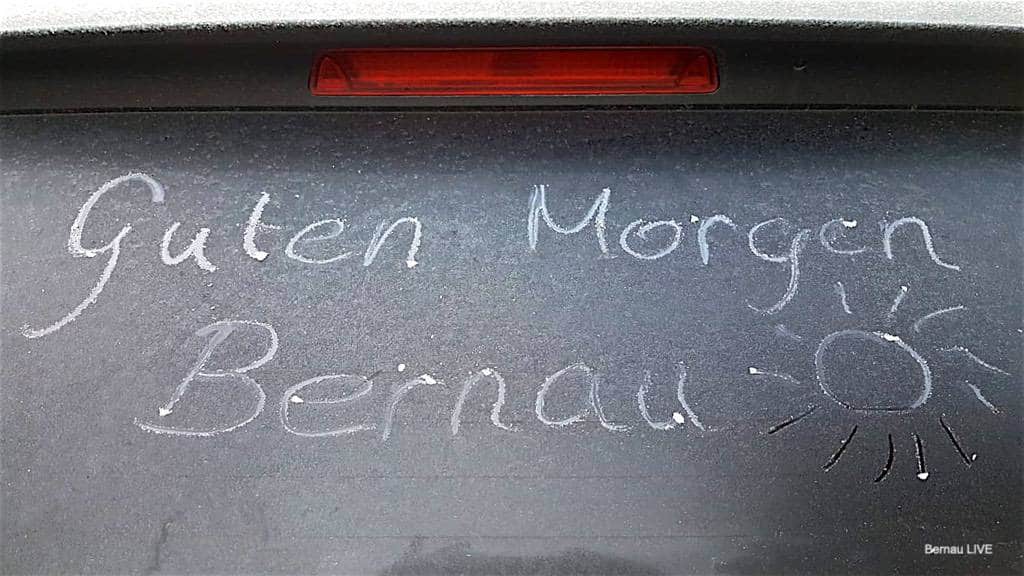 Guten Morgen
Bernau
Bernau LIVE